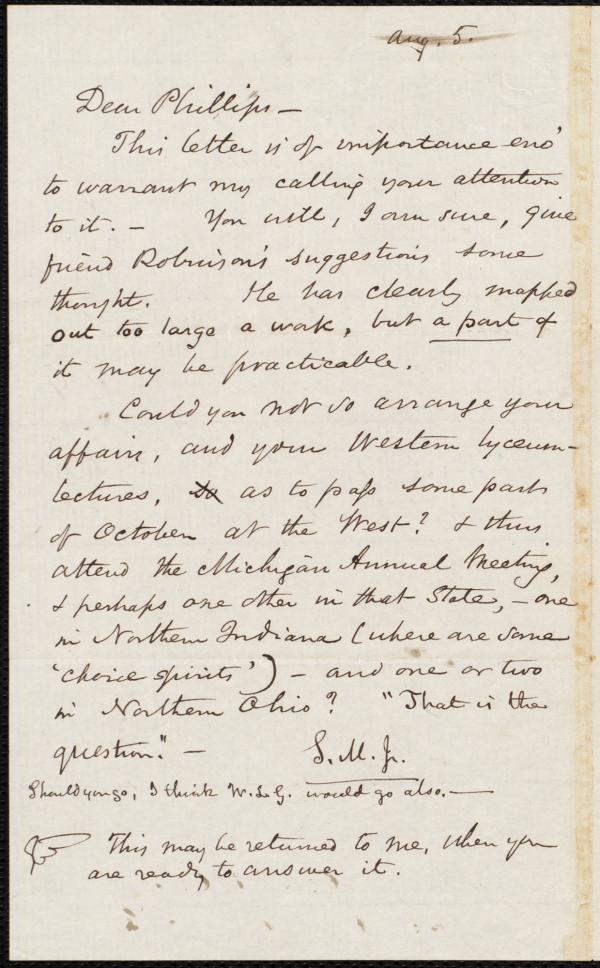 Aug. 5.
Dear Phillips —
This letter is of importance eno'
to warrant my calling your attention
to it. — You will, I am sure, give
friend Robinson's suggestions some
thought. He has clearly mapped
out too large a work, but a part of
it may be practicable.
Could you not so arrange your
affairs, and your Western lyceum-
lectures, so as to pass some part
of October at the West? & thus
attend the Michigan Annual Meeting,
& perhaps one other in that State, — one
in Northern Indiana (where are some
'choice spirits') — and one or two
in Northern Ohio? "That is the
question." — S. M. Jr.
Should you go, I think W. L. G. would go also. —
This may be returned to me, when you
are ready to answer it.